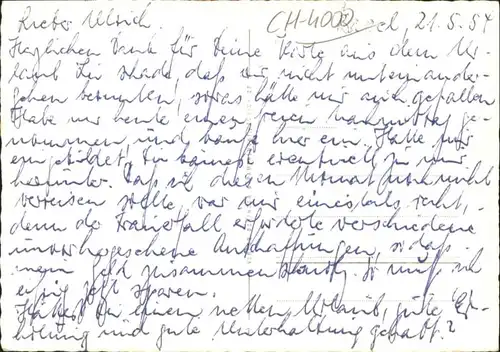 Lieber Ulrich CH-4000 21.5.54
Herzlichen Dank für Deine Karte aus dem Ur-
laub. Zu schade, daß wir nicht untereinander-
gehen konnten, sowas hätte mir auch gefallen
Habe mir heute einen freien Nachmittag ge-
nommen und kaufe hier ein. Hatte mir
eingebildet, Du kämest eventuell zu mir
herunter. Daß ich diesen Monat noch nicht
verreisen sollte, war mir einesteils recht,
denn de Trauerfall erforderte verschiedene
unvorhergesehene Anschaffungen, sodaß
mein Geld zusammen. So muß ich
eisig jetzt sparen.
Hattest Du einen netten Urlaub, gute Er-
holung und gute Unterhaltung gehabt?